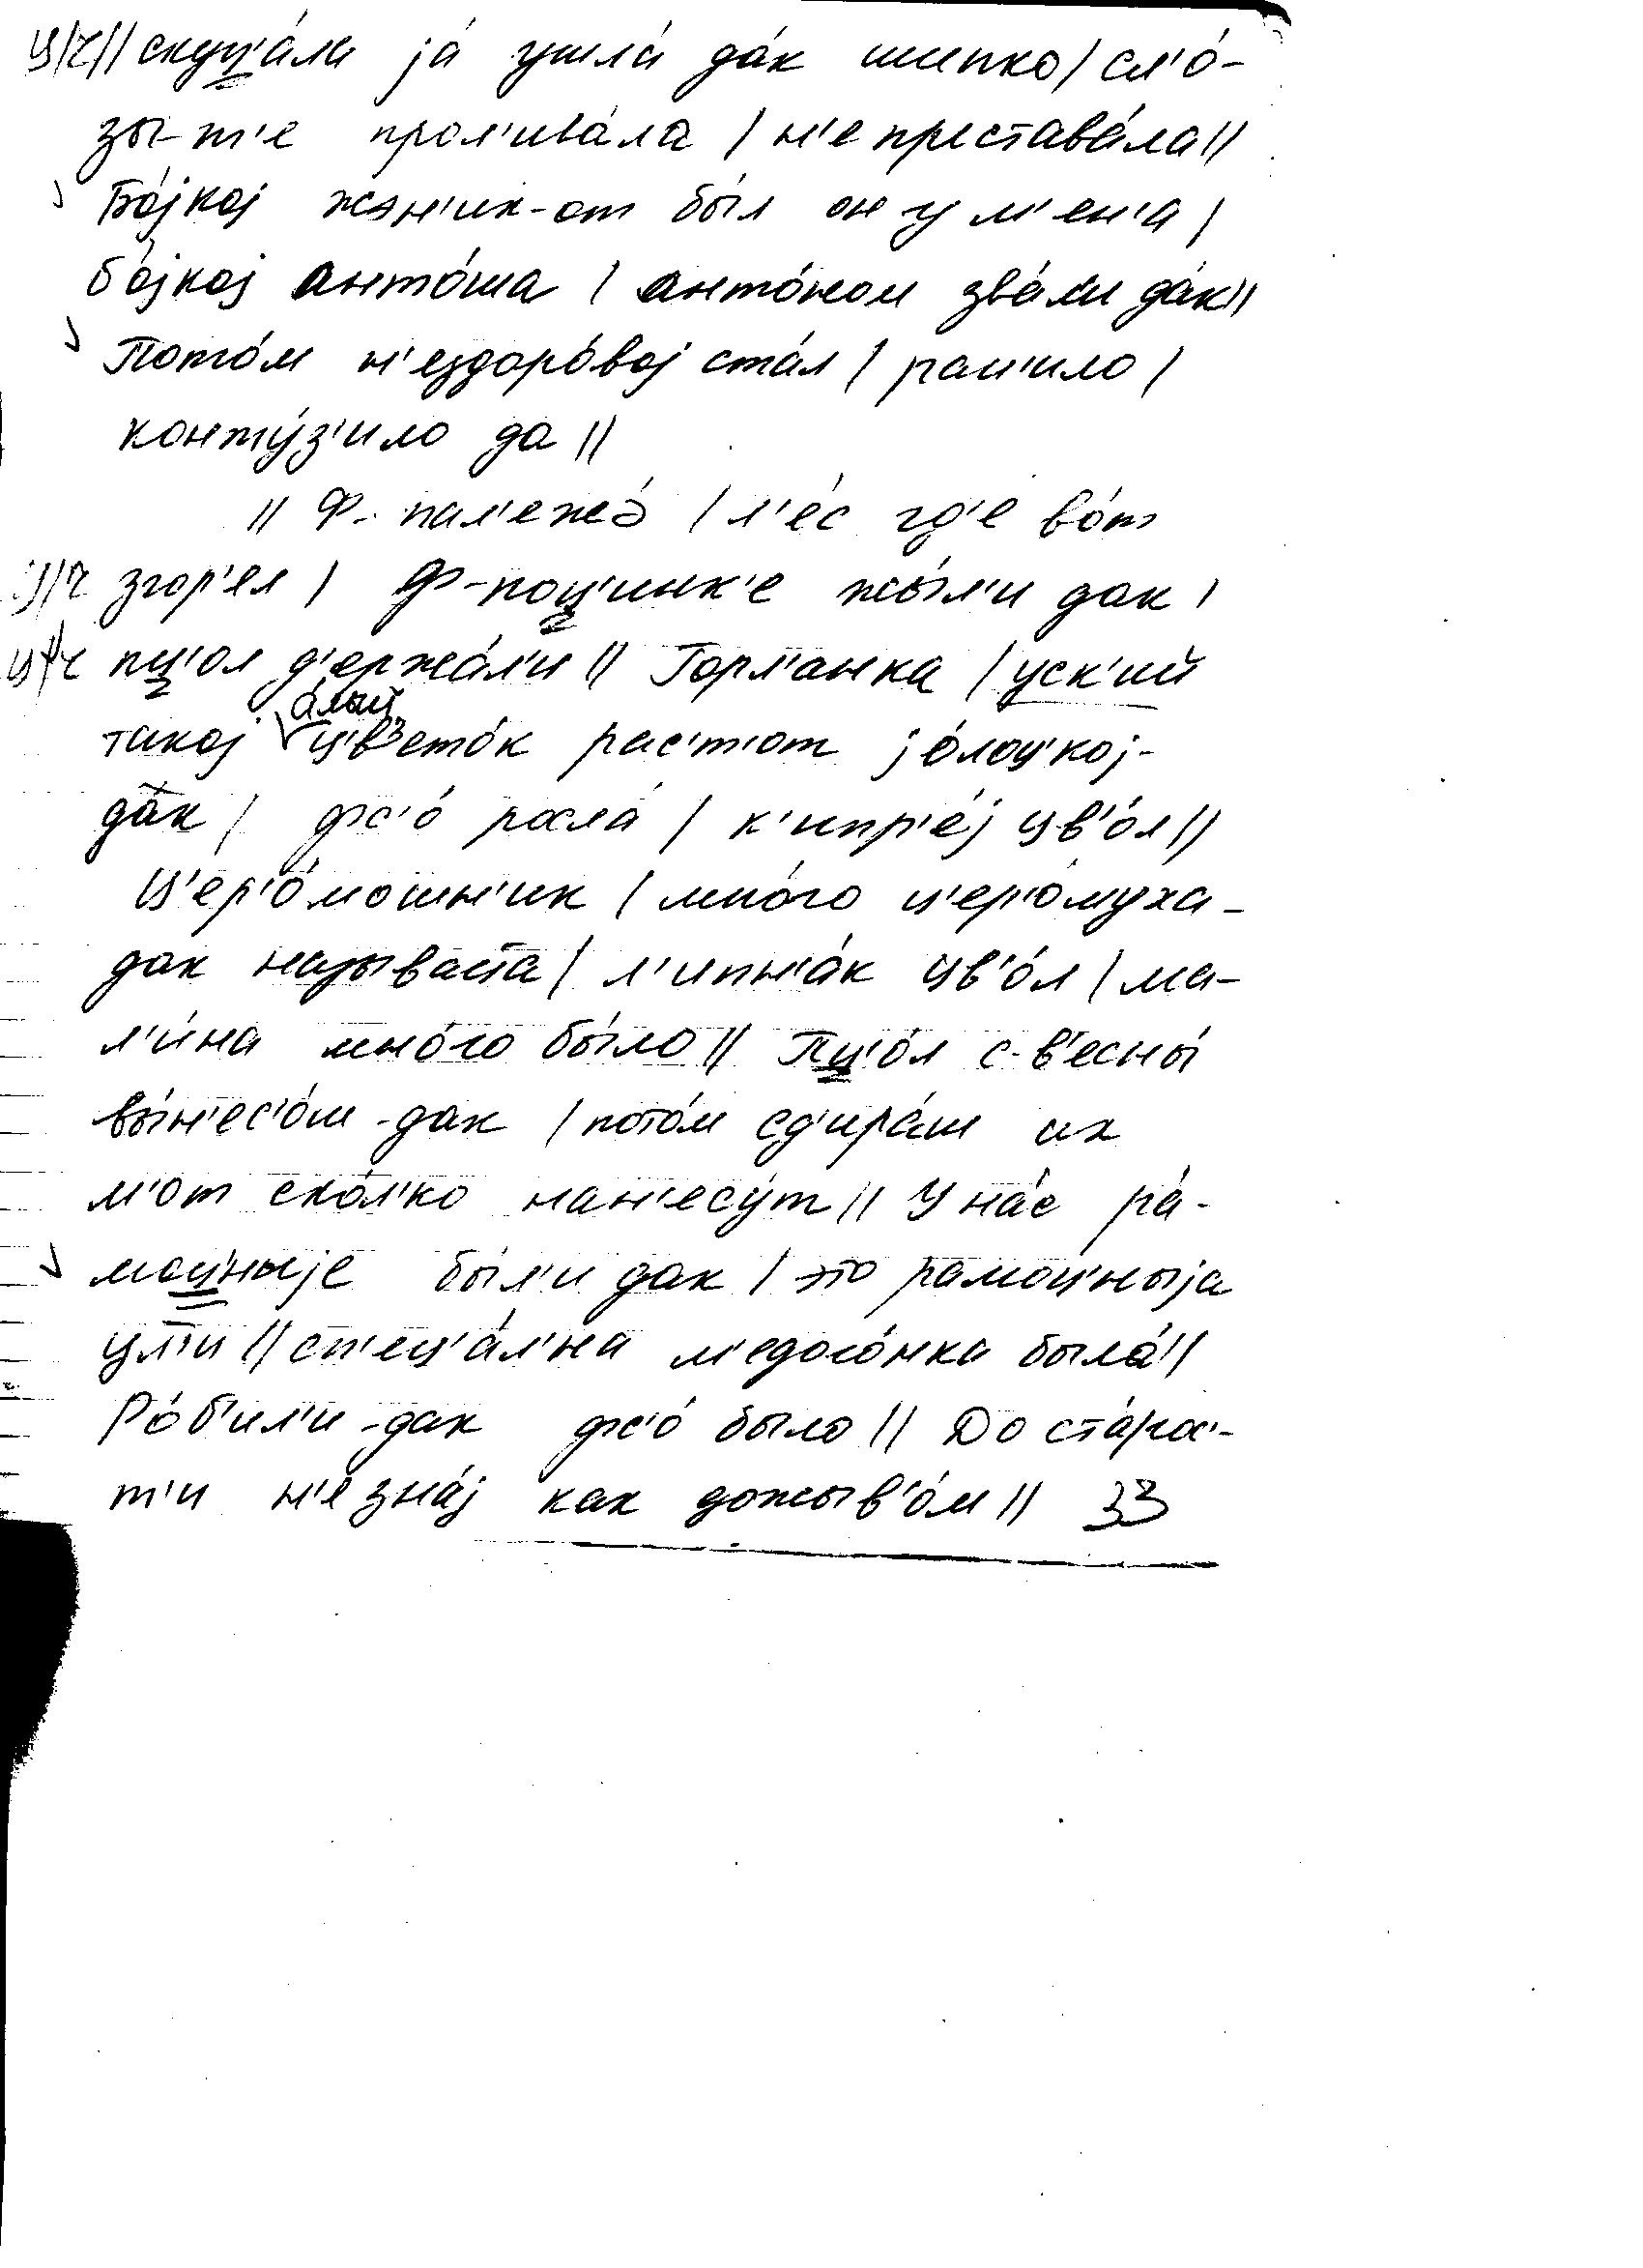 ц/ч // скуц'а́ла jа́ ушла́ да́к шипко / сл'о́-
зы-т'е прол'ива́ла / н'е преставáла //
Бо́jкоj жэн'ик-от бы́л он у м'ен'а /
бо́jкоj анто́ша / анто́ном зва́ли да́к //
Пото́м н'ездоро́воj ста́л / ран'ило /
конту́з'ило да //
// Ф-пал'ежо́ / л'е́с гд'е во́т
ц/ч згор'ел / Ф-поц'инк'е жы́л'и дак /
ц/ч пц'ол д'ержа́л'и // Горл'анка / уск'ий
такоj алый цв'ето́к рас'т'от jо́лоц'коj-
да́к / фс'о́ росла́ / к'ипр'е́j цв'о́л //
Ц'ер'о́мошн'ик / мно́го ц'ер'о́муха-
дак называта / л'ипн'а́к цв'о́л / ма-
л'и́на мно́го бы́ло // Пц'о́л с-в'есны́
вы́н'ес'ом-дак / пото́м сд'ира́ш их
м'от ско́л'ко нан'есу́т // У на́с ра́-
моц'ныjе бы́л'и дак / это рамоц'ныjа
ул'и // сп'ец'а́л'на м'едого́нка была́ //
Ро́б'ил'и-дак фс'о́ было // До ста́рос'-
т'и н'е зна́j как дожыв'о́м // 33